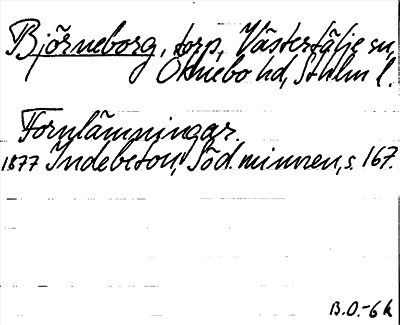 Björneborg, torp, Västertälje sn,
Öknebo hd, Sthlm l.
Fornlämningar.
1877 Indebetou, Söd. minnen, s. 167.
B.O.-6k